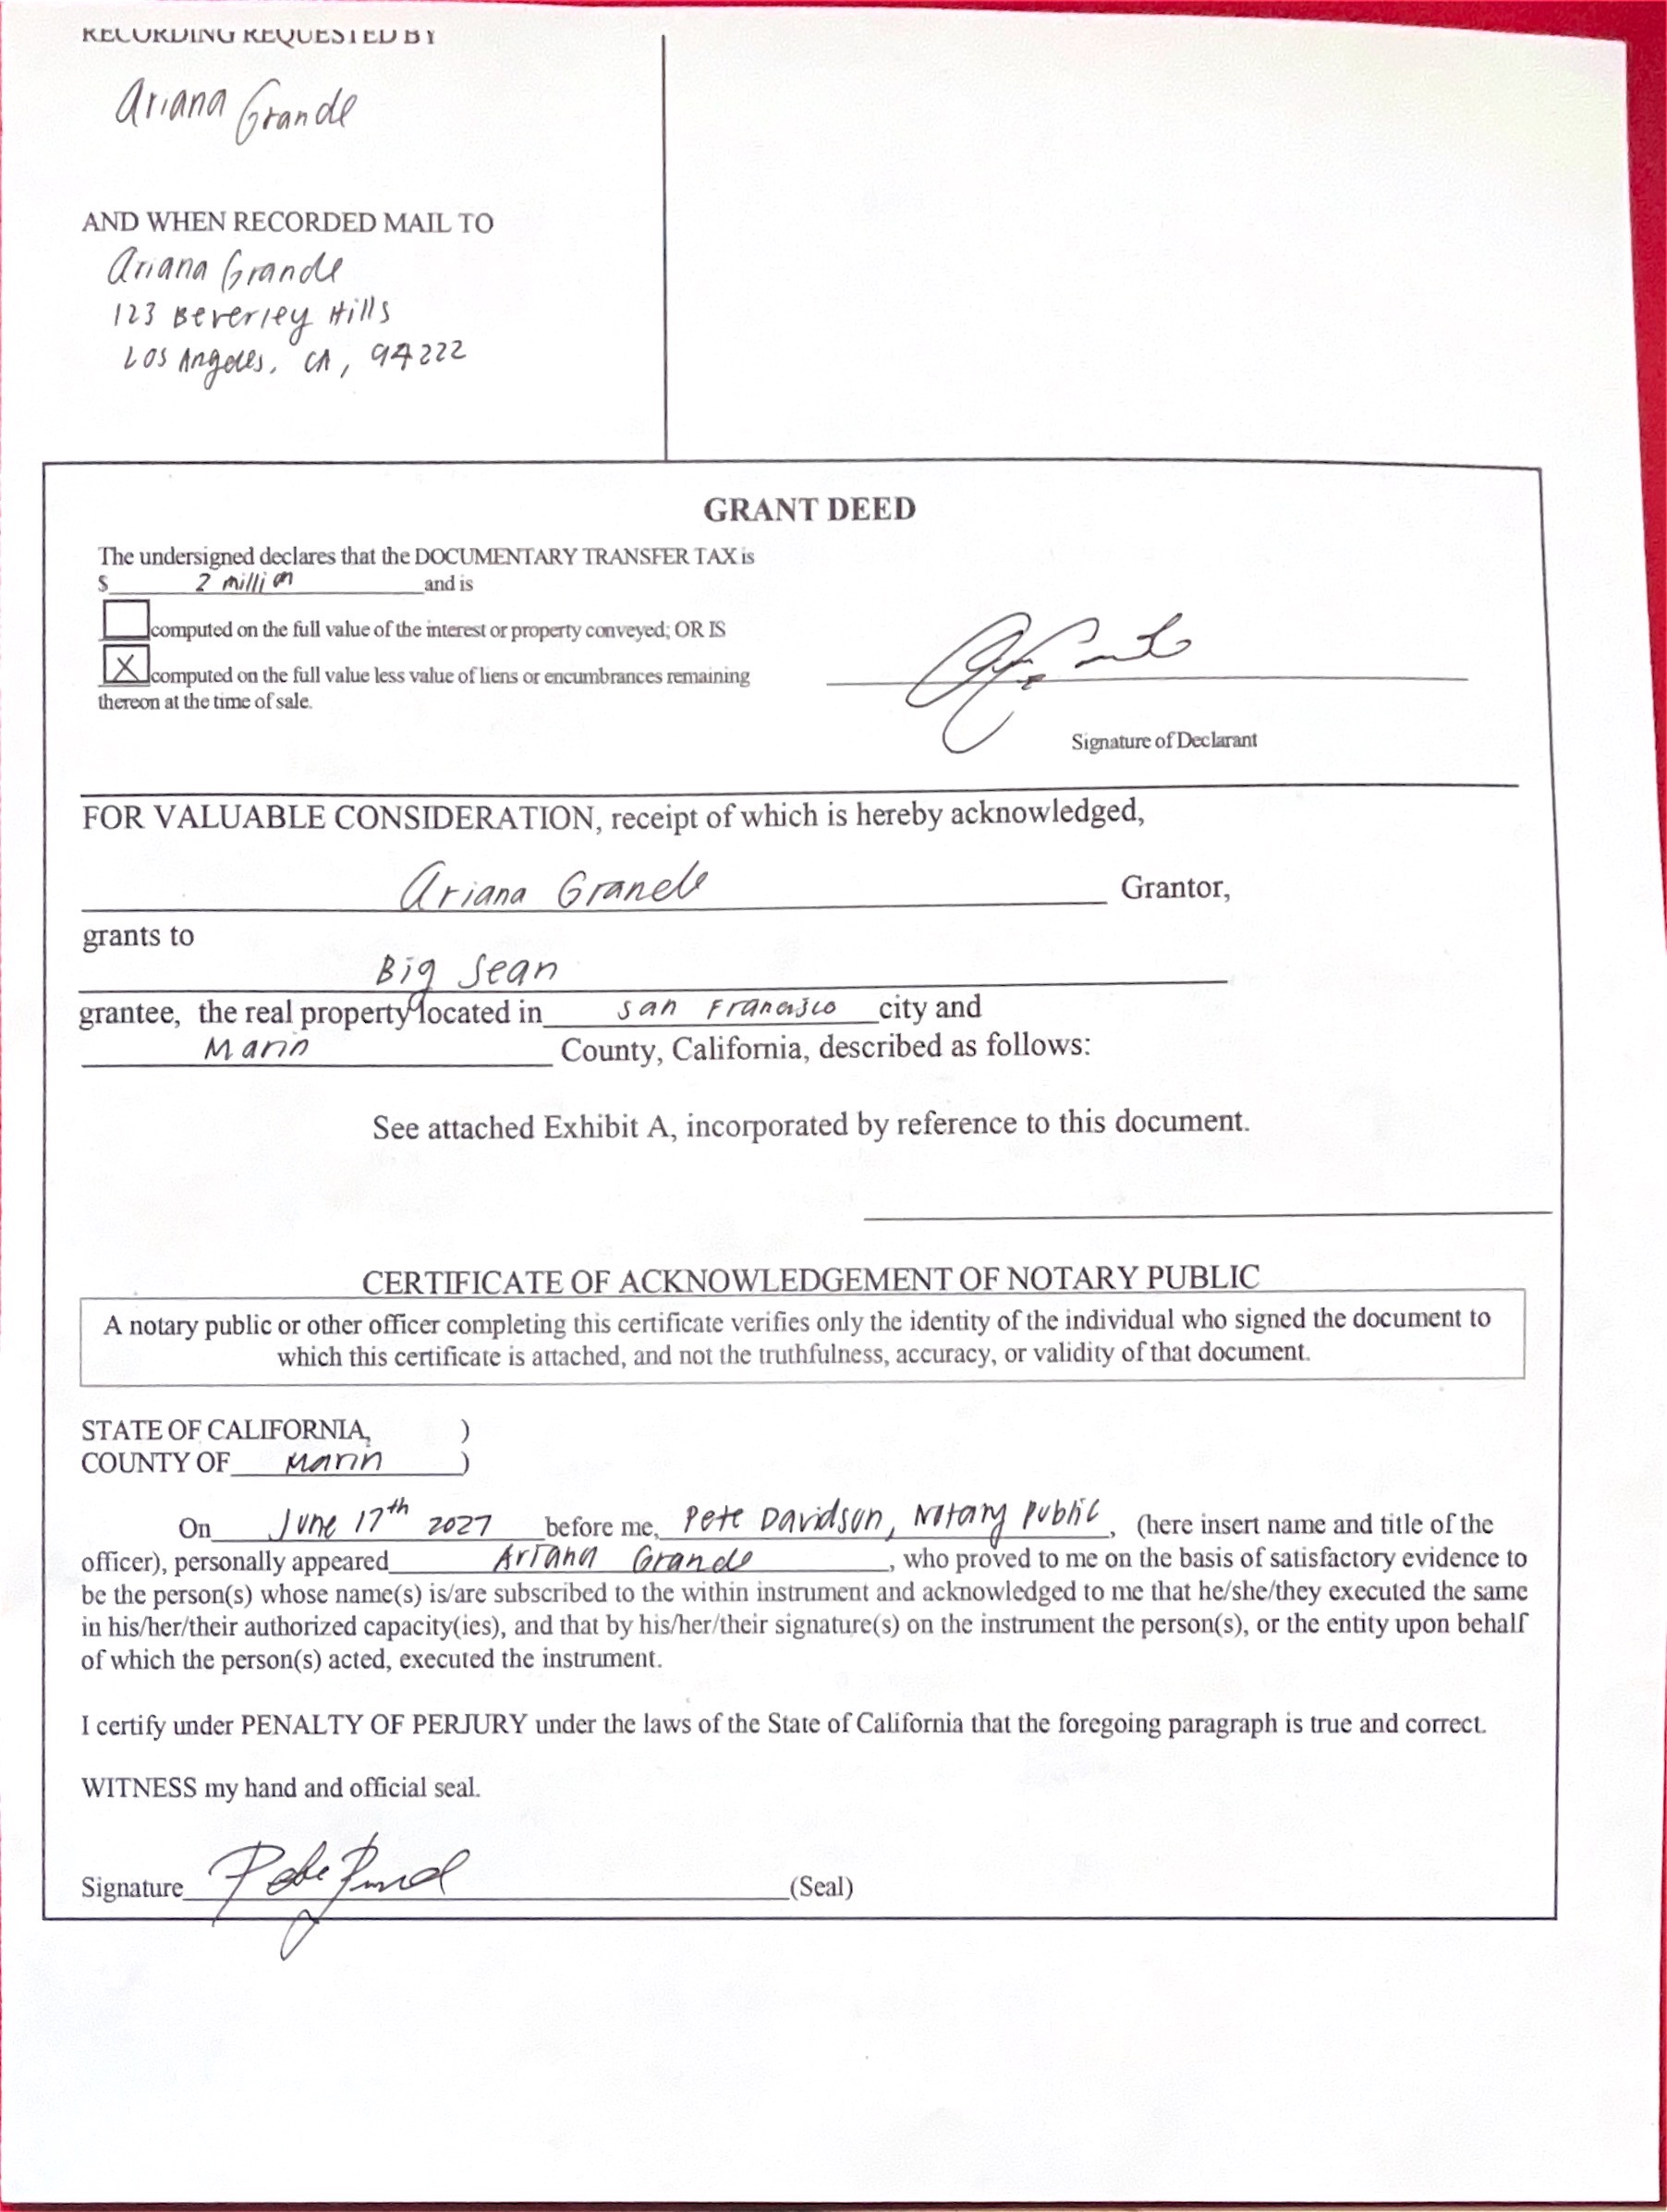 RECORDING REQUESTED BY
Ariana Grande
AND WHEN RECORDED MAIL TO
Ariana Grande
123 Beverley Hills
Los Angeles, CA, 94222
GRANT DEED
The undersigned declares that the DOCUMENTARY TRANSFER TAX is
$ 2 million and is
computed on the full value of the interest or property conveyed; OR IS
X computed on the full value less value of liens or encumbrances remaining
thereon at the time of sale.
Signature of Declarant
FOR VALUABLE CONSIDERATION, receipt of which is hereby acknowledged,
Ariana Grande Grantor,
grants to
Big Sean
grantee, the real property located in San Francisco city and
Marin County, California, described as follows:
See attached Exhibit A, incorporated by reference to this document.
CERTIFICATE OF ACKNOWLEDGEMENT OF NOTARY PUBLIC
A notary public or other officer completing this certificate verifies only the identity of the individual who signed the document to
which this certificate is attached, and not the truthfulness, accuracy, or validity of that document.
STATE OF CALIFORNIA, )
COUNTY OF Marin )
On June 17th 2027 before me, Pete Davidson, Notary Public, (here insert name and title of the
officer), personally appeared Ariana Grande, who proved to me on the basis of satisfactory evidence to
be the person(s) whose name(s) is/are subscribed to the within instrument and acknowledged to me that he/she/they executed the same
in his/her/their authorized capacity(ies), and that by his/her/their signature(s) on the instrument the person(s), or the entity upon behalf
of which the person(s) acted, executed the instrument.
I certify under PENALTY OF PERJURY under the laws of the State of California that the foregoing paragraph is true and correct.
WITNESS my hand and official seal.
Signature (Seal)